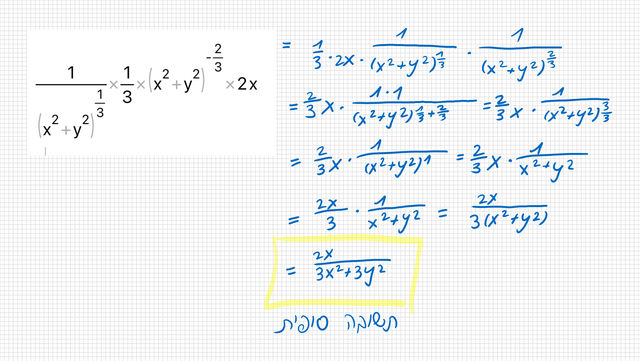 1/(x²+y²)^(1/3) × 1/3 × (x²+y²)^(-2/3) × 2x
= 1/3 · 2x · 1/(x²+y²)^(1/3) · 1/(x²+y²)^(2/3)
= 2/3 x · 1·1/(x²+y²)^(1/3+2/3) = 2/3 x · 1/(x²+y²)^(3/3)
= 2/3 x · 1/(x²+y²)^1 = 2/3 x · 1/(x²+y²)
= 2x/3 · 1/(x²+y²) = 2x/(3(x²+y²))
= 2x/(3x²+3y²)
תשובה סופית